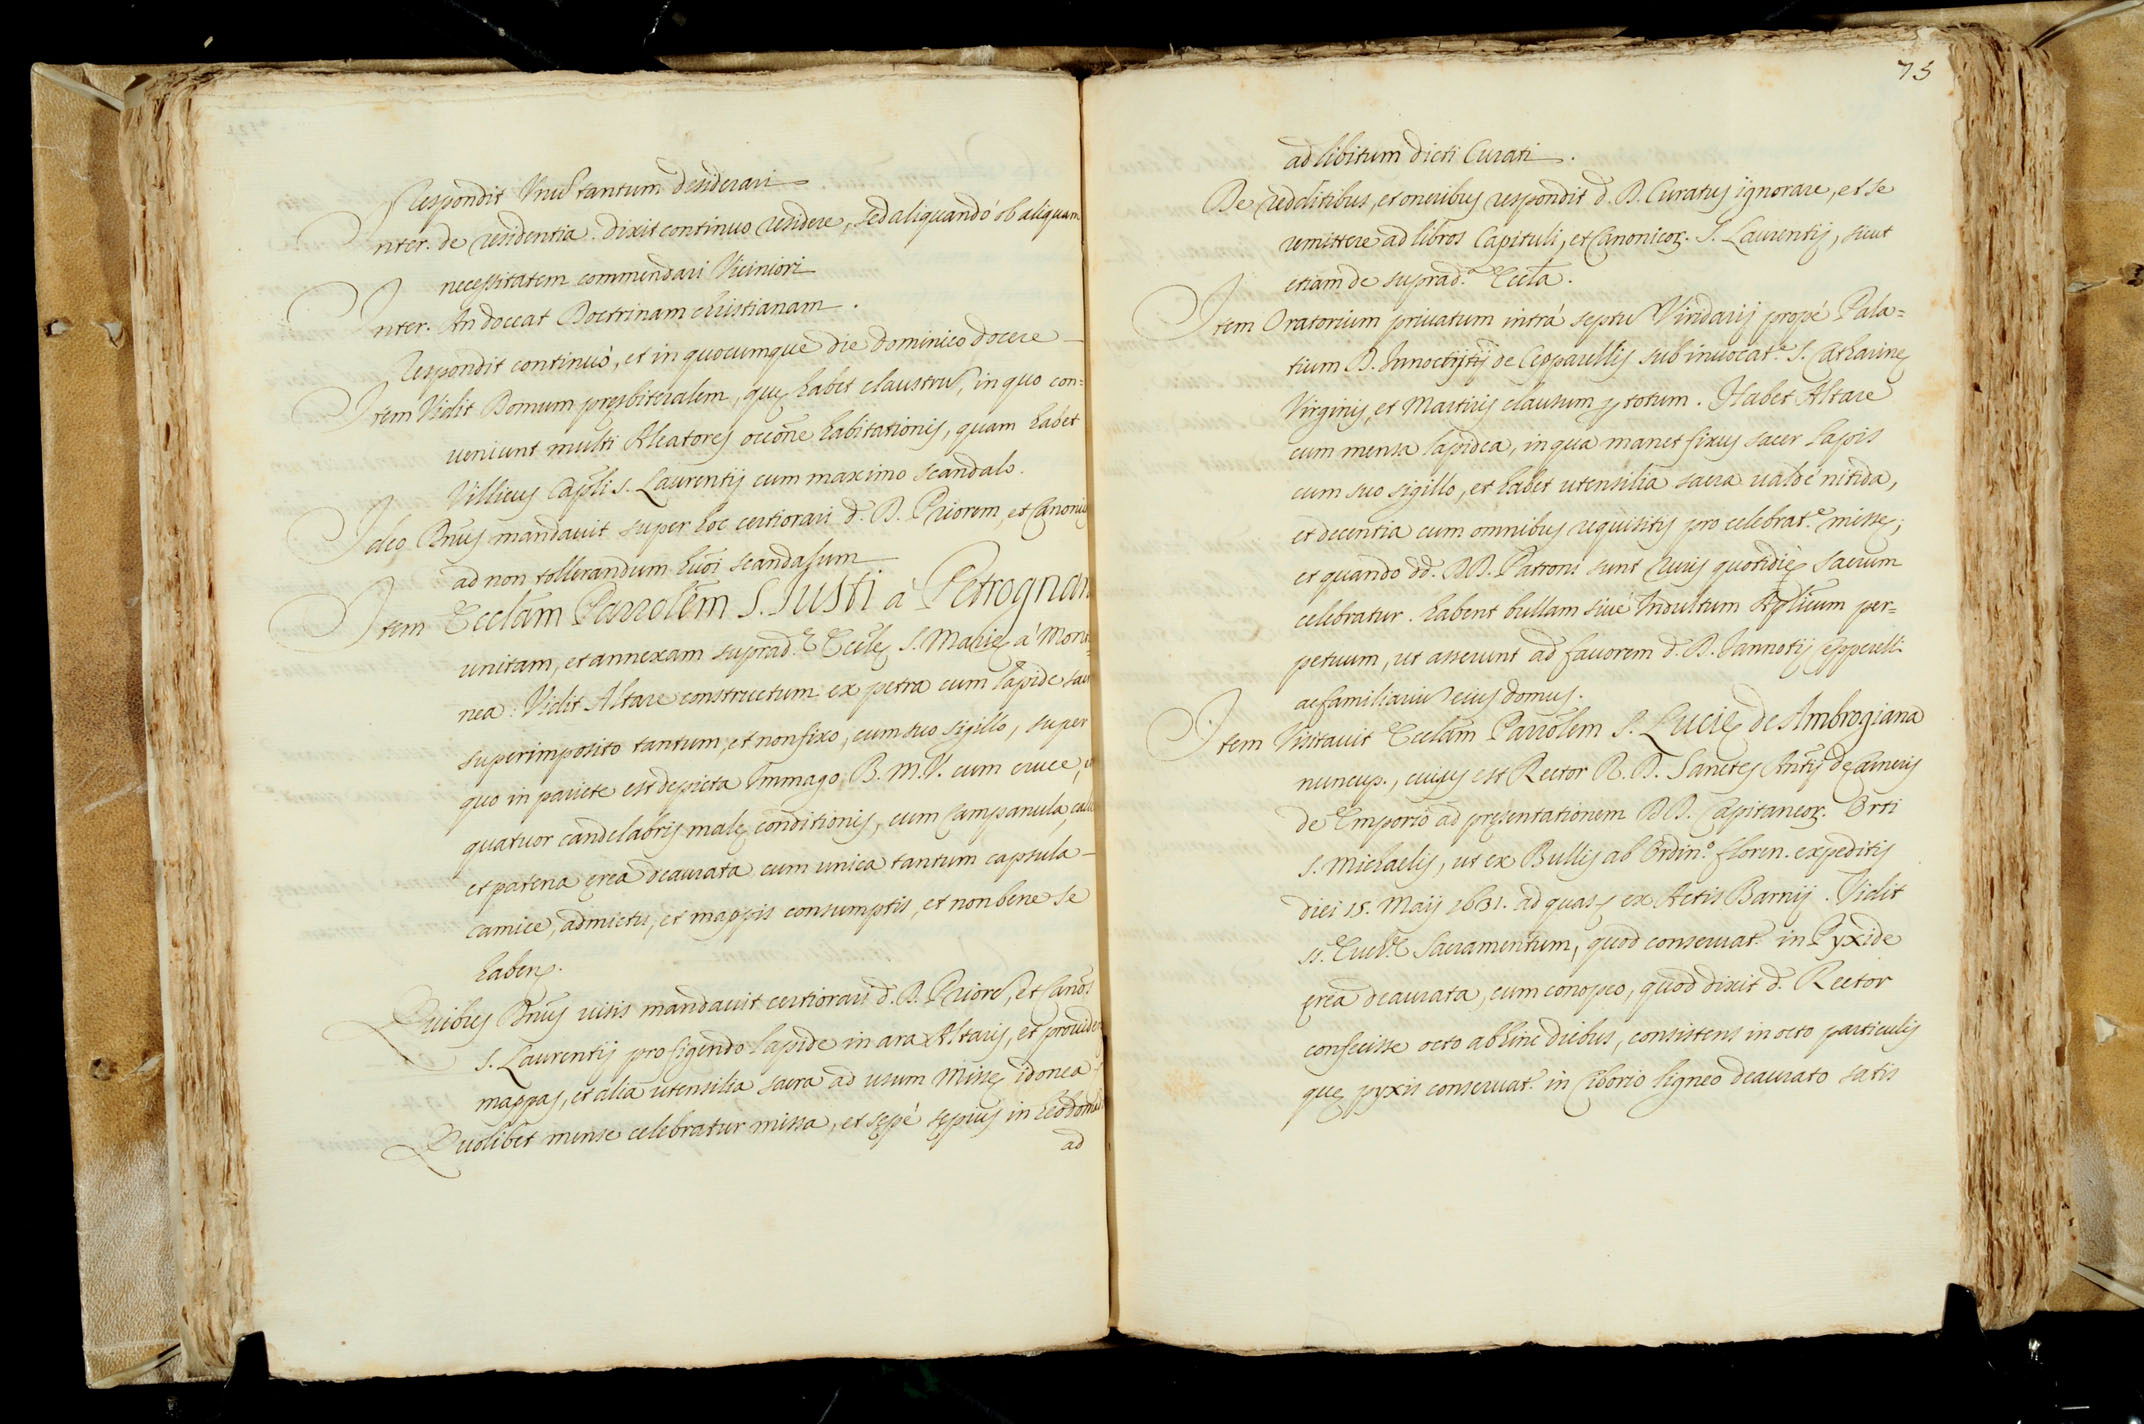 Respondit Unu tantum desiderari
Inter. de residentia. dixit continuo residere, sed aliquando ob aliquam
necessitatem commendari Viciniori
Inter. An doceat Doctrinam christianam.
Respondit continuò, et in quocumque die dominico docere
Item Vidit Domum presbiteralem, quę habet claustru, in quo con=
ueniunt multi Aleatores occōne habitationis, quam habet
Villicus Caplī S. Laurentij cum maximo scandalo.
Ideo Dnūs mandauit super hoc certiorari d. D. Priorem, et Canonic
ad non tollerandum hmōi scandalum
Item Ecclām Parrolēm S. Iusti à Petrognan
unitam, et annexam suprad.ę Ecclę S. Marię à Mont
nea: Vidit Altare constructum ex petra cum lapide sacr
superimposito tantum, et non fixo, cum suo sigillo, super
quo in pariete est depicta Immago B. M. V. cum cruce, et
quatuor candelabris malę conditionis, cum Campanula, cali
et patena ęrea deaurata cum unica tantum capsula
camice, admictu, et mappis consumptis, et non bene se
habens.
Quibus Dnūs uisis mandauit certiorari d. D. Priore, et Canoc̄
S. Laurentij pro figendo lapide in ara Altaris, et prouiden
mappas, et alia utensilia sacra ad usum Missę idonea
Quolibet mense celebratur missa, et sępè sępius in hebdomad
ad
75
ad libitum dicti Curati.
De redditibus, et oneribus respondit d. D. Curatus ignorare, et se
remittere ad libros Capituli, et Canonicoꝝ. S. Laurentij, sicut
etiam de suprad.a Eccla.
Item Oratorium priuatum intrà septu Viridarij propè Pala=
tium D. de Cepparellis sub inuocat.e S. Catharinę
Virginis, et Martiris clausum ꝑ totum. Habet Altare
cum mensa lapidea, in qua manet fixus sacer lapis
cum suo sigillo, et habet utensilia sacra ualdè nitida,
et decentia cum omnibus requisitis pro celebrat.e missę;
et quando dd. DD. Patroni sunt Ruris quotidiè sacrum
celebratur. habent bullam siuè Indultum Aplicum per=
petuum, ut asserunt ad fauorem d. D. Iannotij Cepperell.
ac familiariu eius domus.
Item Visitauit Ecclām Parrolēm S. Lucię de Ambrogiana
nuncup., cuius est Rector R. D. Sanctes Antij de
de Emporio ad pręsentationem DD. Capitaneoꝝ. Orti
S. Michaelis, ut ex Bullis ab Ordin.o floren. expeditis
diei 15. Maij 1631. ad quas, ex Actis Barnij. Vidit
SS. Euch.ę Sacramentum, quod conseruat.r in Pyxide
ęrea deaurata, cum conopeo, quod dixit d. Rector
confecisse octo abhinc diebus, consistens in octo particulis
quę pyxis conseruat.r in Ciborio ligneo deaurato satis